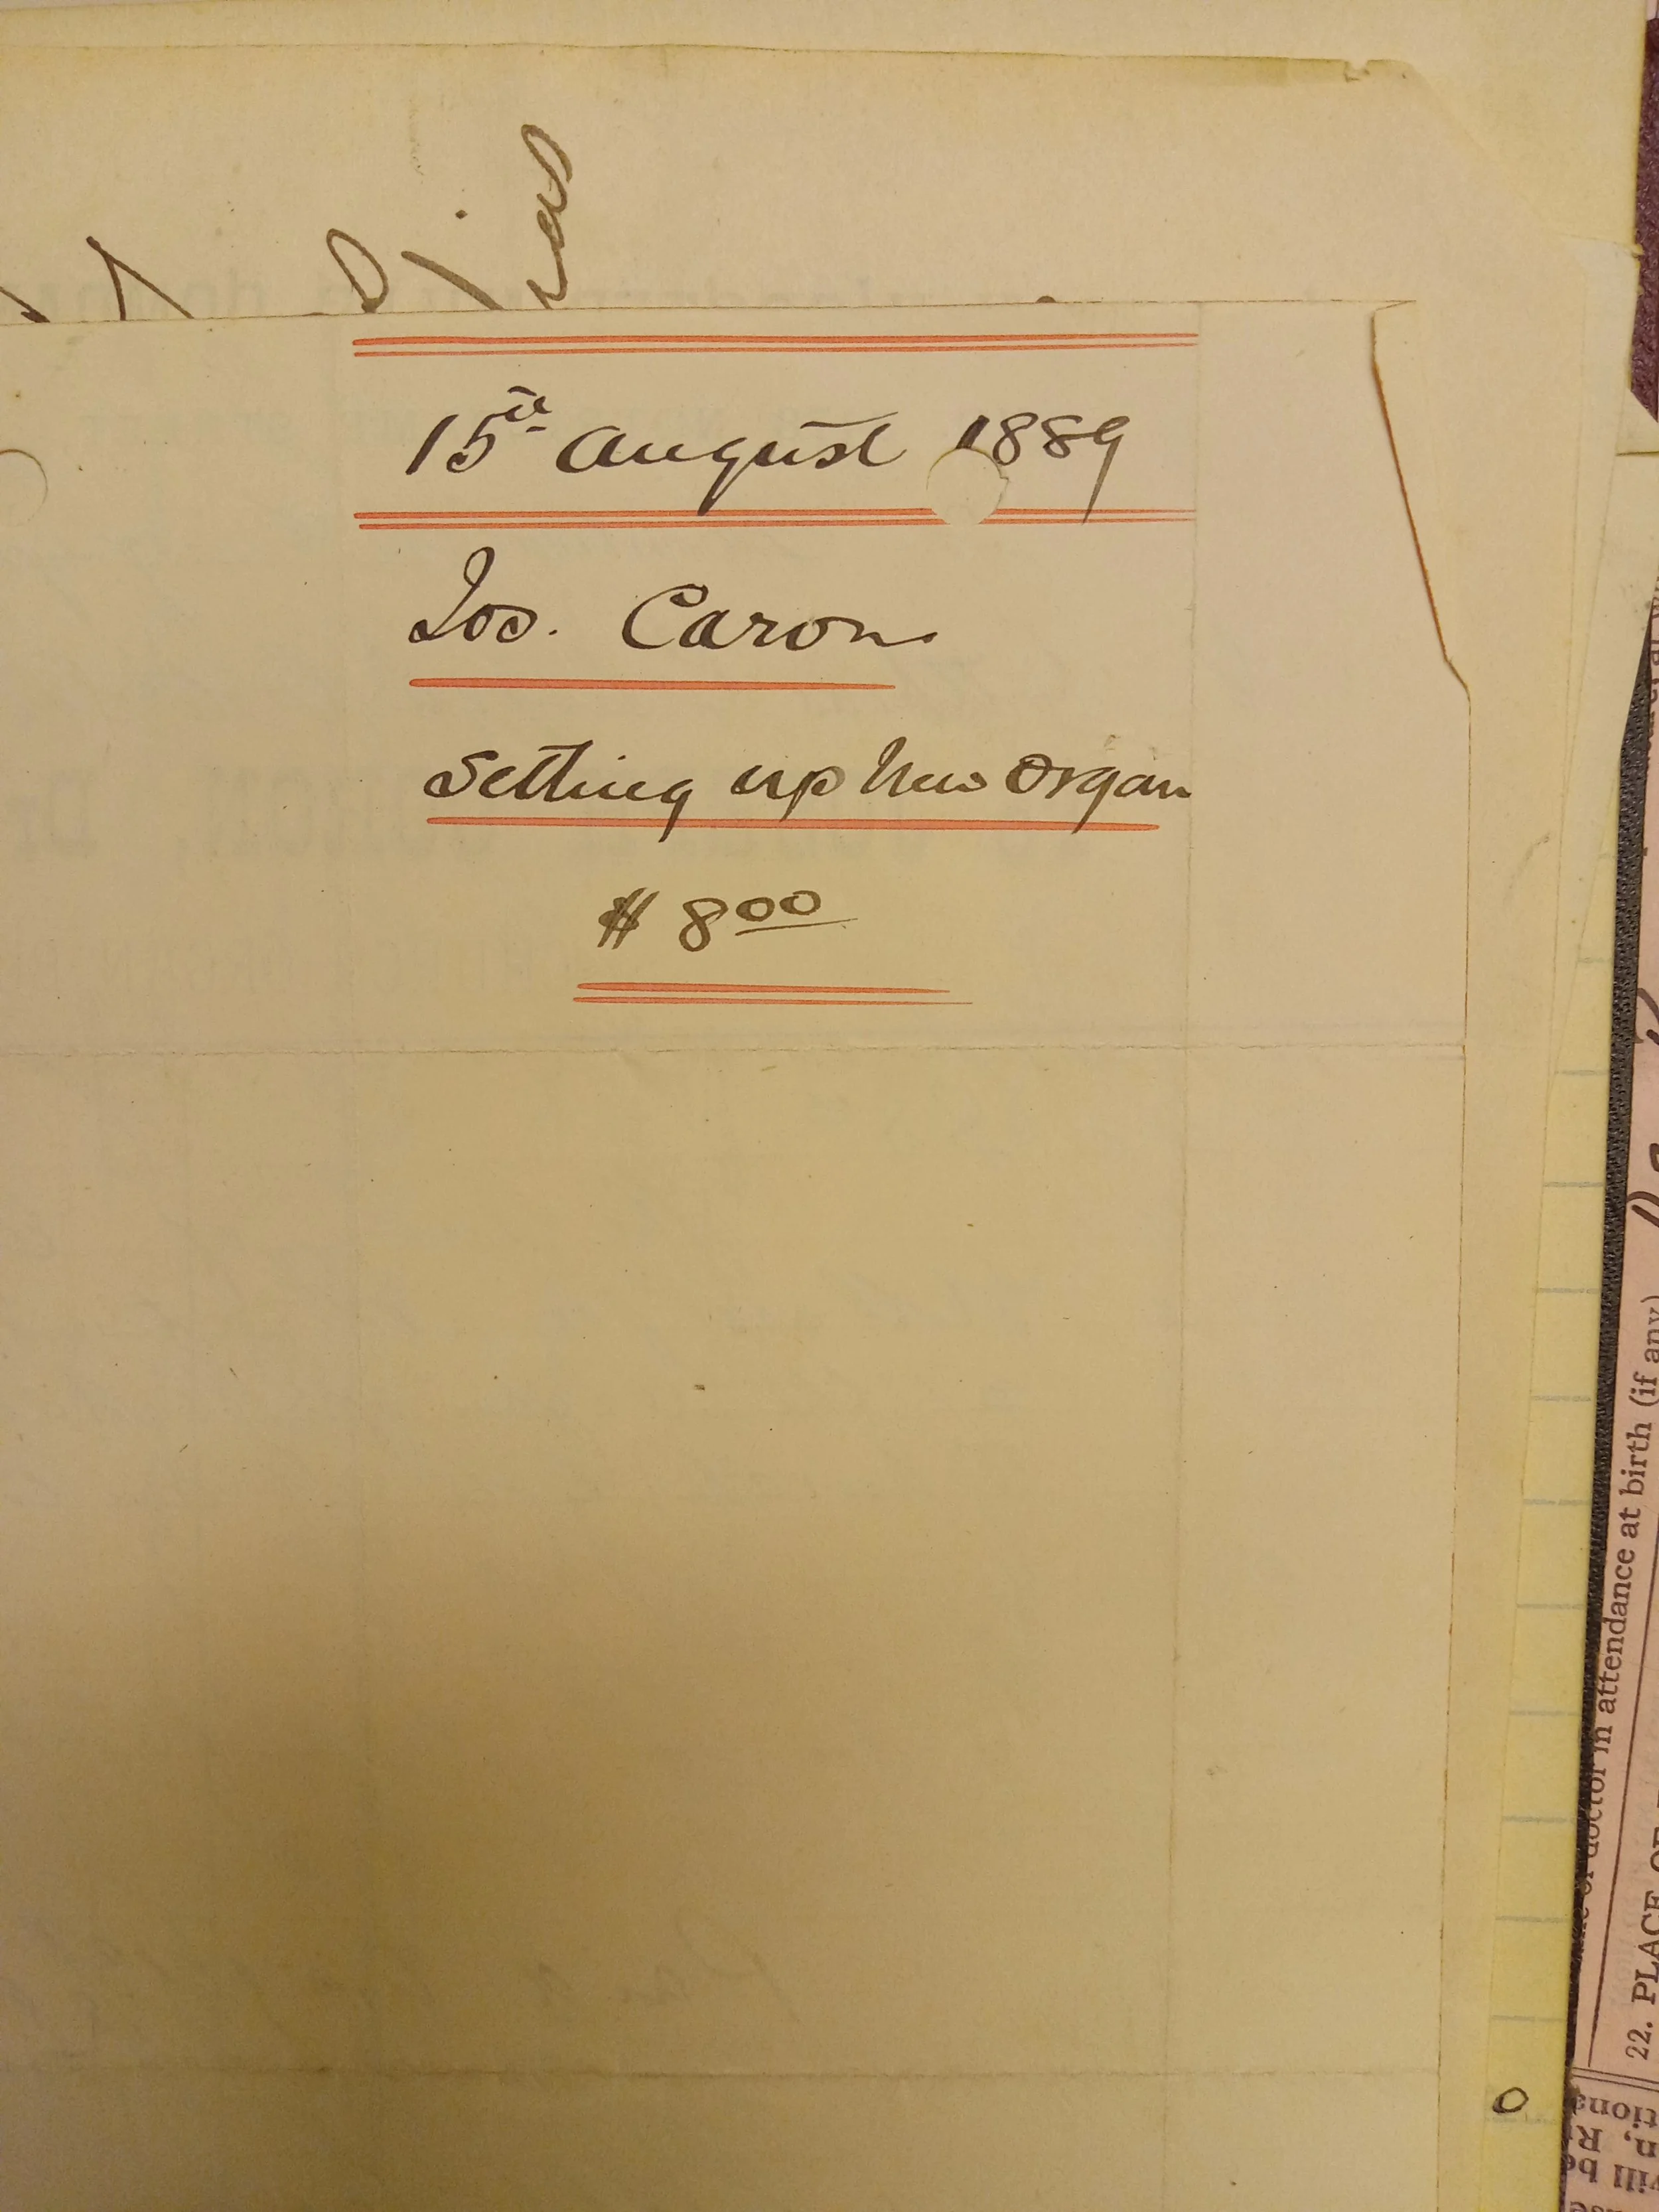 15th August 1889
Jos. Caron
Setting up New Organ
$ 8 00
doctor in attendance at birth (if any)
22. PLACE OF